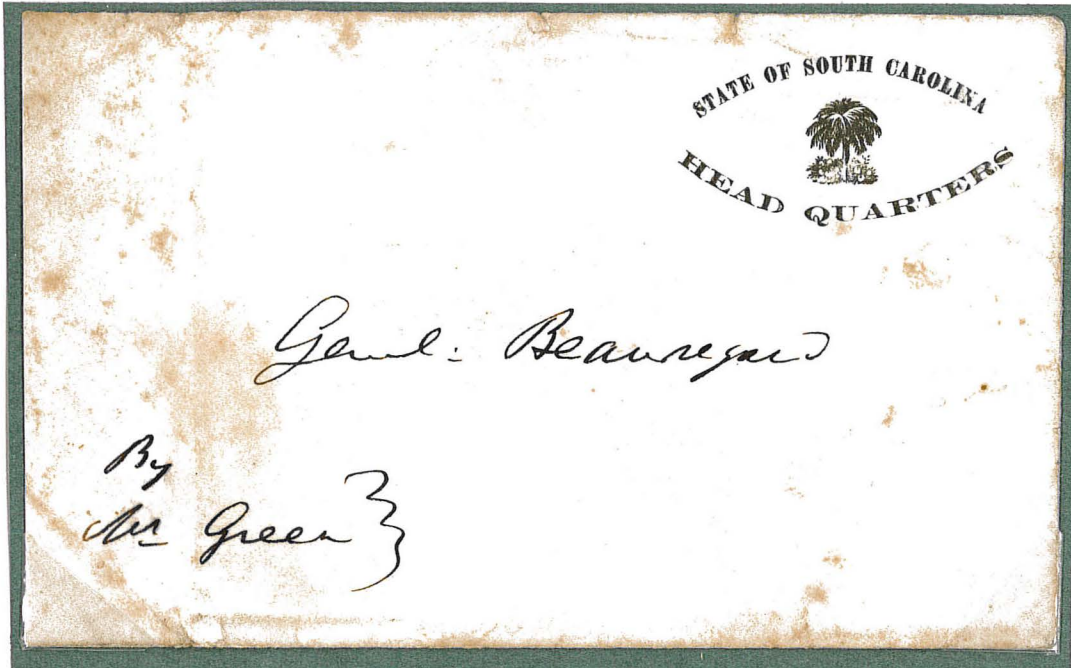 STATE OF SOUTH CAROLINA
HEAD QUARTERS
Genl: Beauregard
By
Mr Green